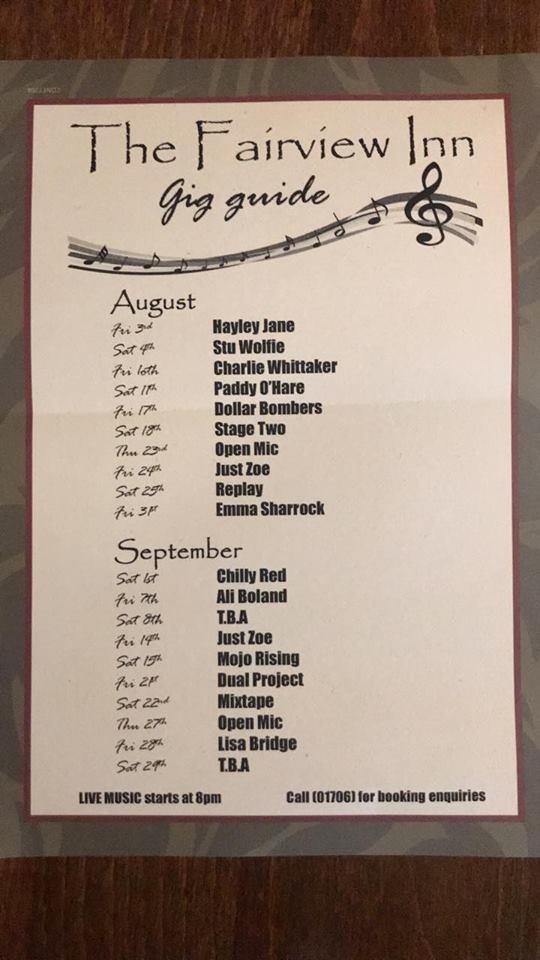 The Fairview Inn
Gig guide
August
Fri 3rd Hayley Jane
Sat 4th Stu Wolfie
Fri 10th Charlie Whittaker
Sat 11th Paddy O'Hare
Fri 17th Dollar Bombers
Sat 18th Stage Two
Thu 23rd Open Mic
Fri 24th Just Zoe
Sat 25th Replay
Fri 31st Emma Sharrock
September
Sat 1st Chilly Red
Fri 7th Ali Boland
Sat 8th T.B.A
Fri 14th Just Zoe
Sat 15th Mojo Rising
Fri 21st Dual Project
Sat 22nd Mixtape
Thu 27th Open Mic
Fri 28th Lisa Bridge
Sat 29th T.B.A
LIVE MUSIC starts at 8pm Call (01706) for booking enquiries